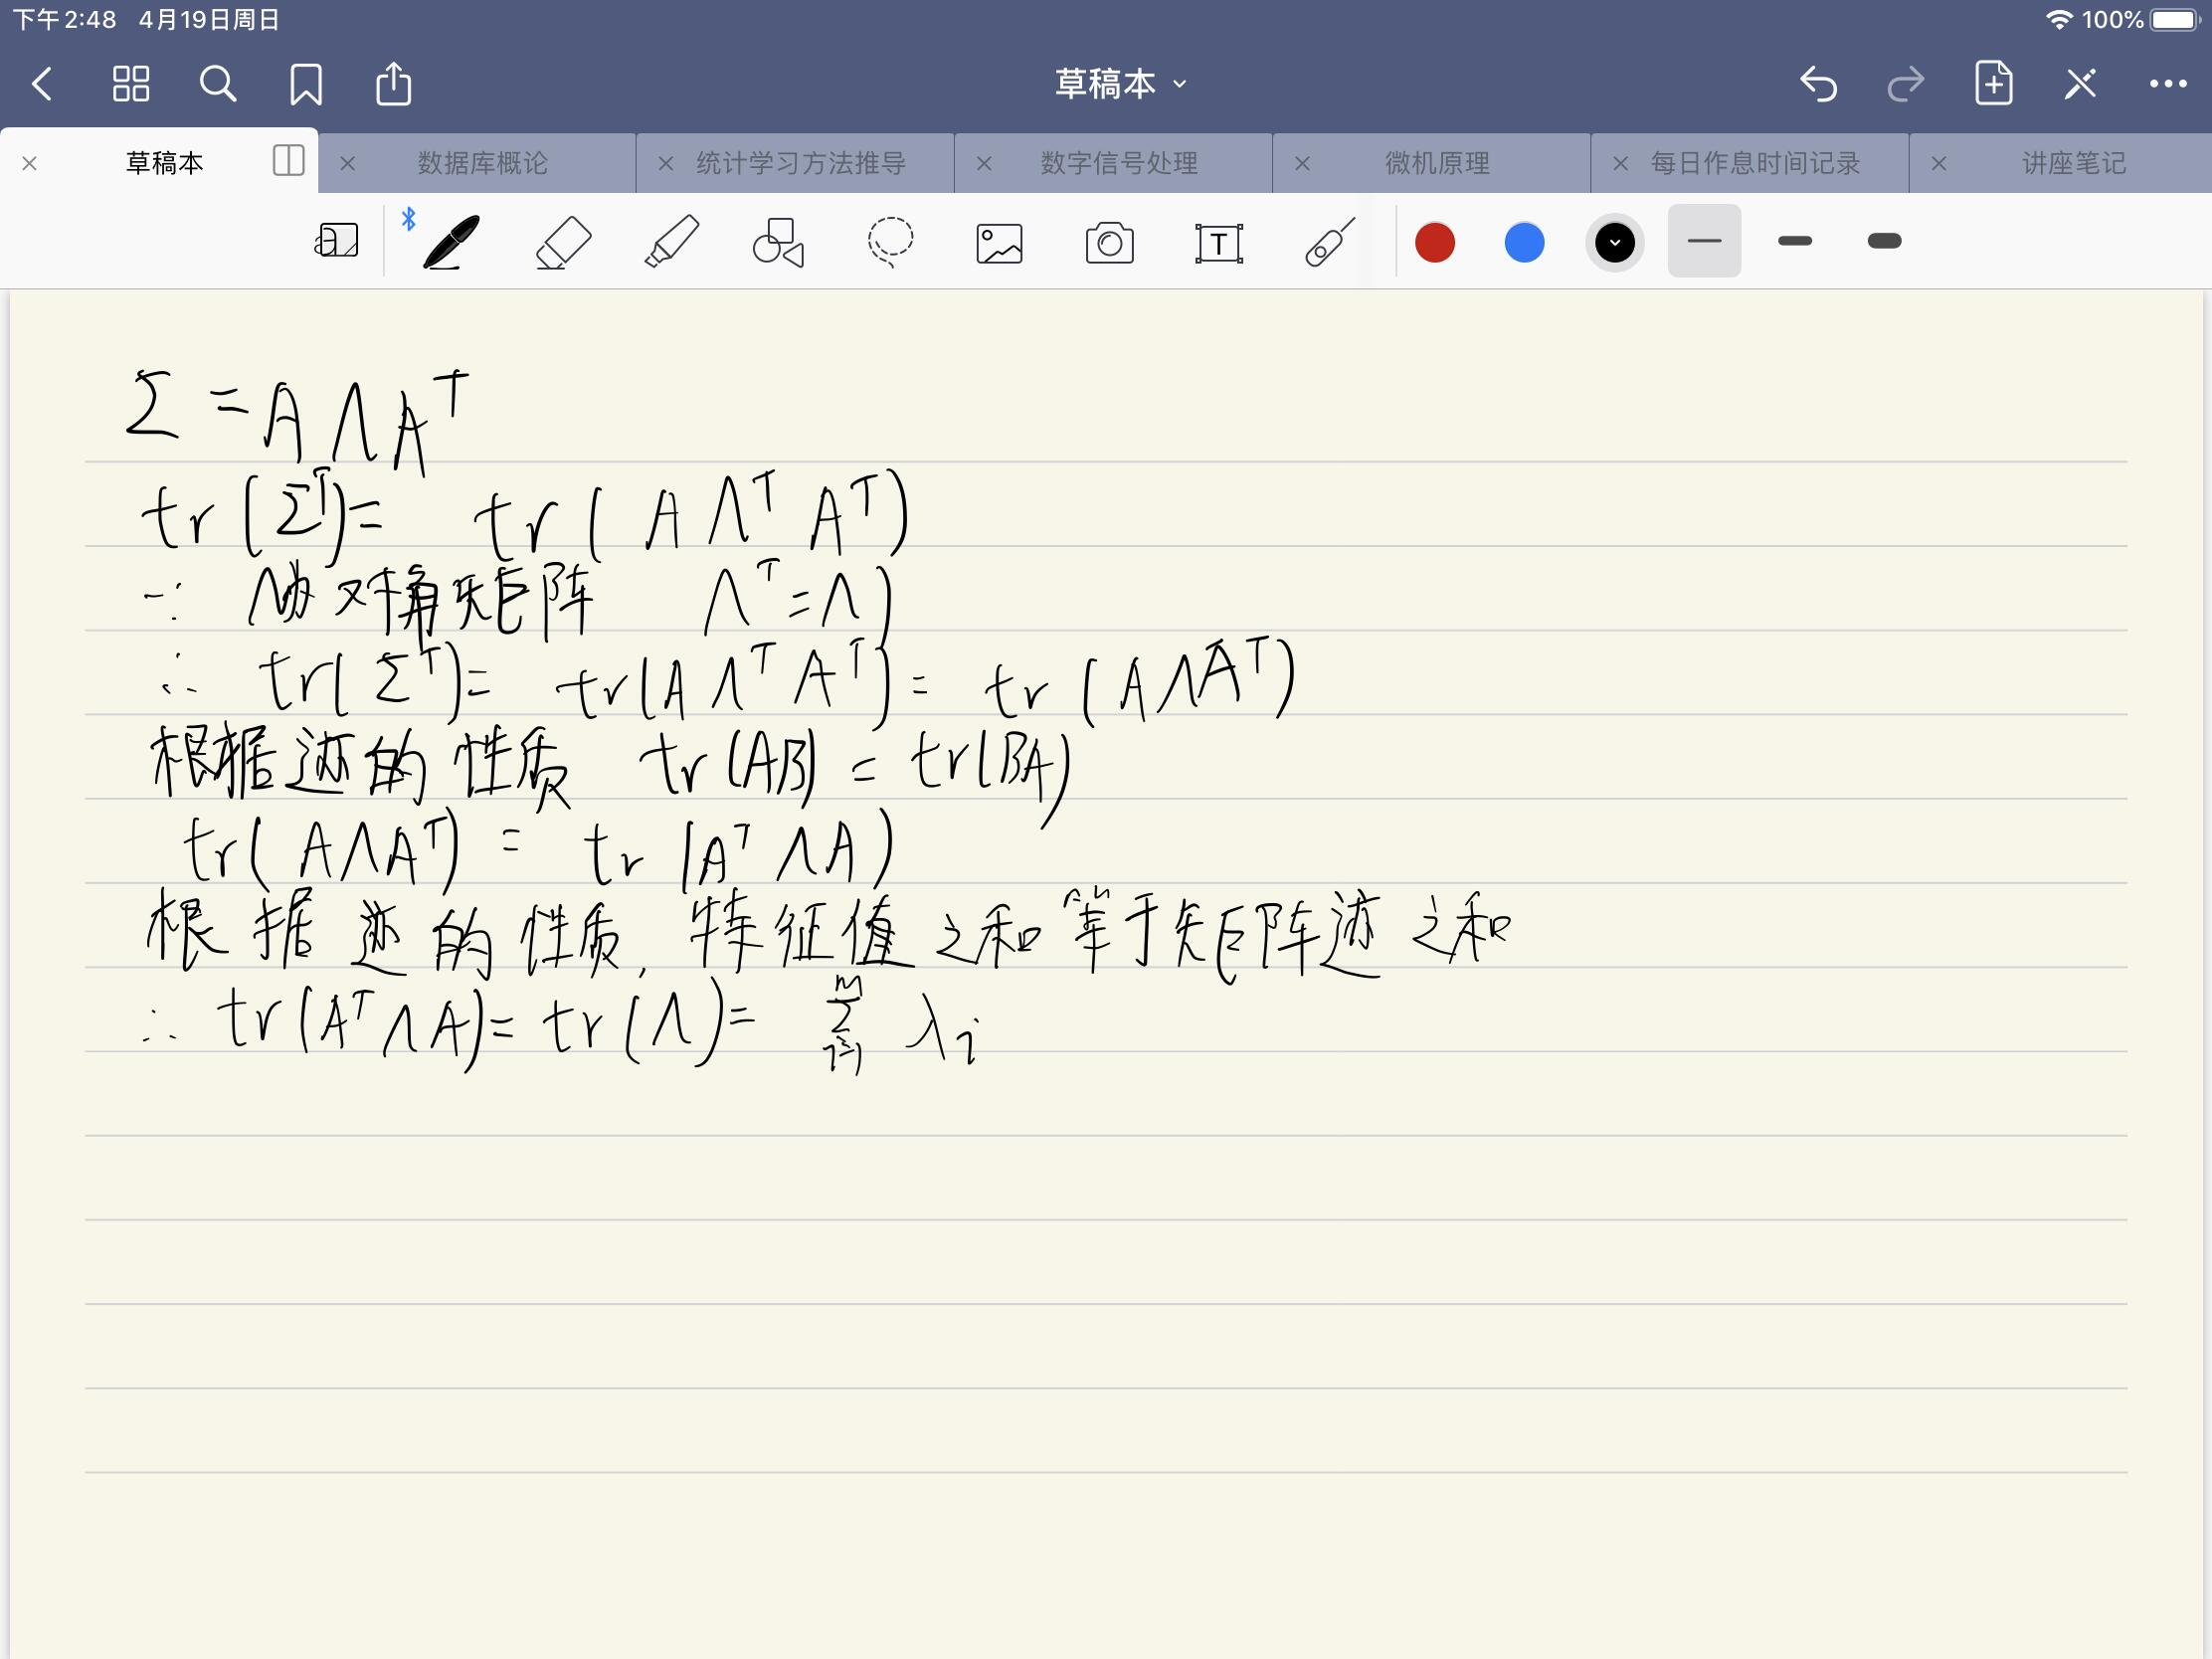 下午2:48 4月19日周日 100%
草稿本
草稿本 数据库概论 统计学习方法推导 数字信号处理 微机原理 每日作息时间记录 讲座笔记
T
Σ = A Λ Aᵀ
tr(Σᵀ) = tr(A Λᵀ Aᵀ)
∵ Λ为对角矩阵 Λᵀ = Λ)
∴ tr(Σᵀ) = tr(A Λᵀ Aᵀ) = tr(A Λ Aᵀ)
根据迹的性质 tr(AB) = tr(BA)
tr(AΛAᵀ) = tr(Aᵀ Λ A)
根据迹的性质, 特征值之和等于矩阵迹之和
∴ tr(Aᵀ Λ A) = tr(Λ) = Σᵢ₌₁ᵐ λᵢ